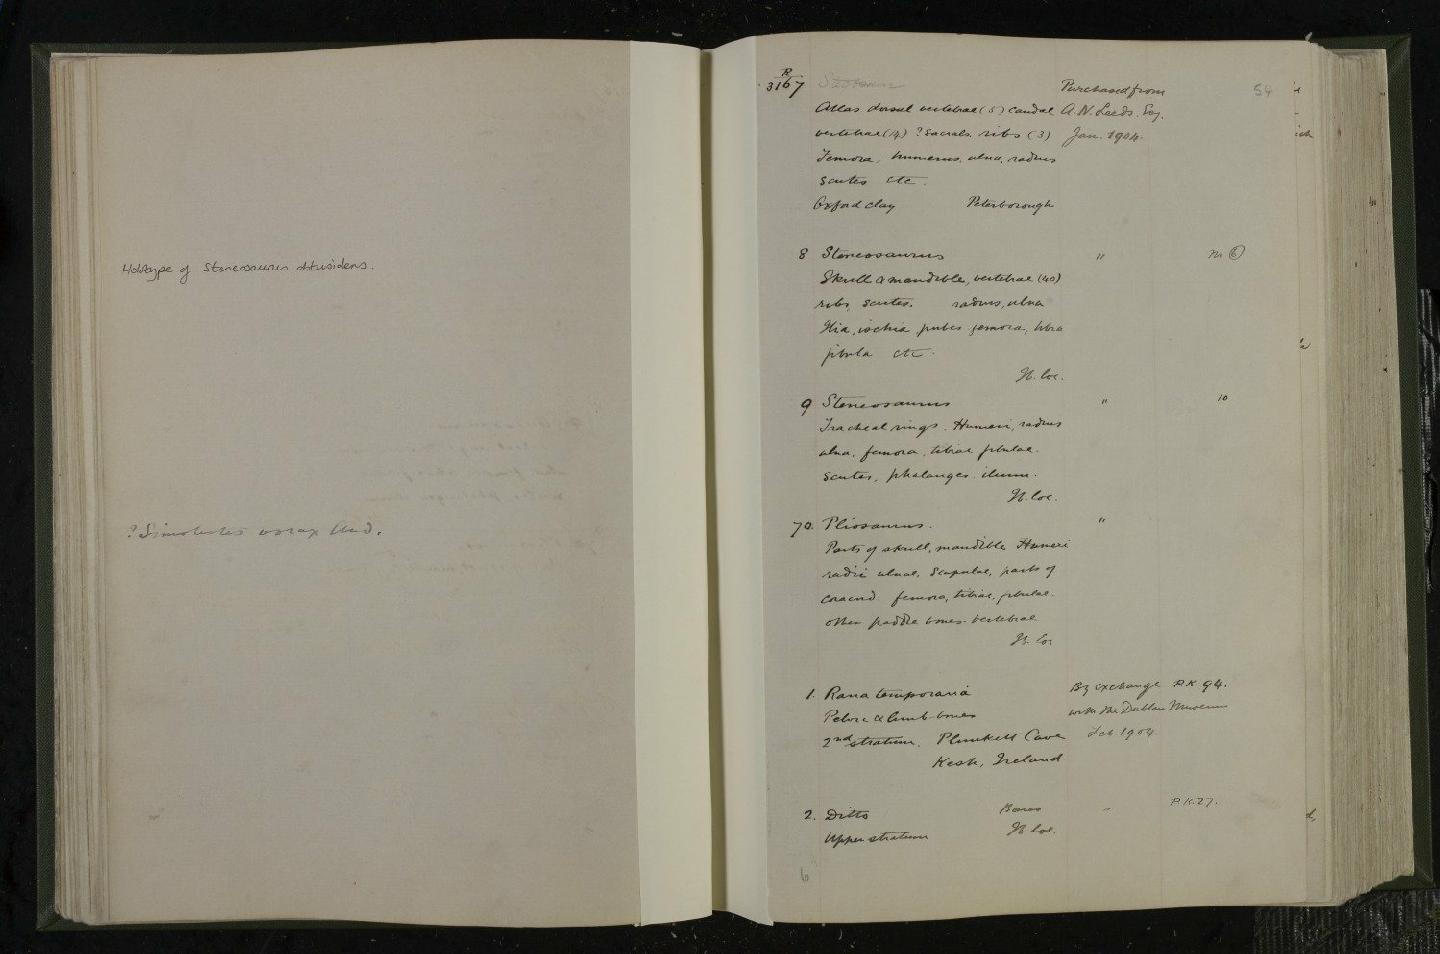 Holotype of Steneosaurus obtusidens.
? Simolestes vorax And.
R
3167
Purchased from
54
Atlas dorsal vertebrae (5) caudal A.N. Leeds. Esq.
vertebrae (14) ? Sacrals. ribs (3) Jan. 1904.
Femora, humerus, ulna, radius
scutes etc.
Oxford Clay Peterborough
8 Steneosaurus " No 6
Skull & mandible, vertebrae (40)
ribs, scutes. radius, ulna
Ilia, ischia pubes femora, tibia
fibula etc.
H. loc.
9 Steneosaurus " 10
Tracheal rings. Humeri, radius
ulna, femora, tibiae fibulae.
scutes, phalanges. ilium.
H. loc.
70. Pliosaurus. "
Parts of skull, mandible Humeri
radii ulnae, Scapulae, parts of
coracoid. femora, tibiae, fibulae.
other paddle bones. vertebrae
H. loc
1. Rana temporaria By exchange P.K. 94.
Pelvic & limb-bones with the Dublin Museum
2nd stratum. Plunkett Cave Feb 1904
Kesh, Ireland
2. Ditto Bones " P.K. 27.
Upper stratum H. loc.
6